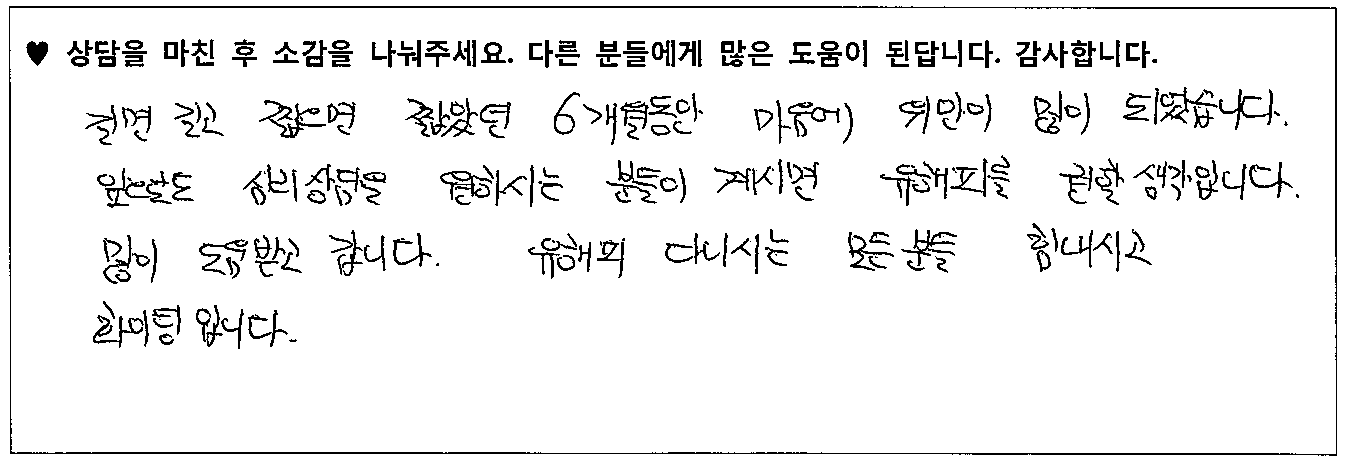 ♥ 상담을 마친 후 소감을 나눠주세요. 다른 분들에게 많은 도움이 된답니다. 감사합니다.
길면 길고 짧으면 짧았던 6개월동안 마음에 위안이 많이 되었습니다.
앞으로도 심리상담을 원하시는 분들이 계시면 유해피를 권할 생각입니다.
많이 도움받고 갑니다. 유해피 다니시는 모든분들 힘내시고
화이팅입니다.